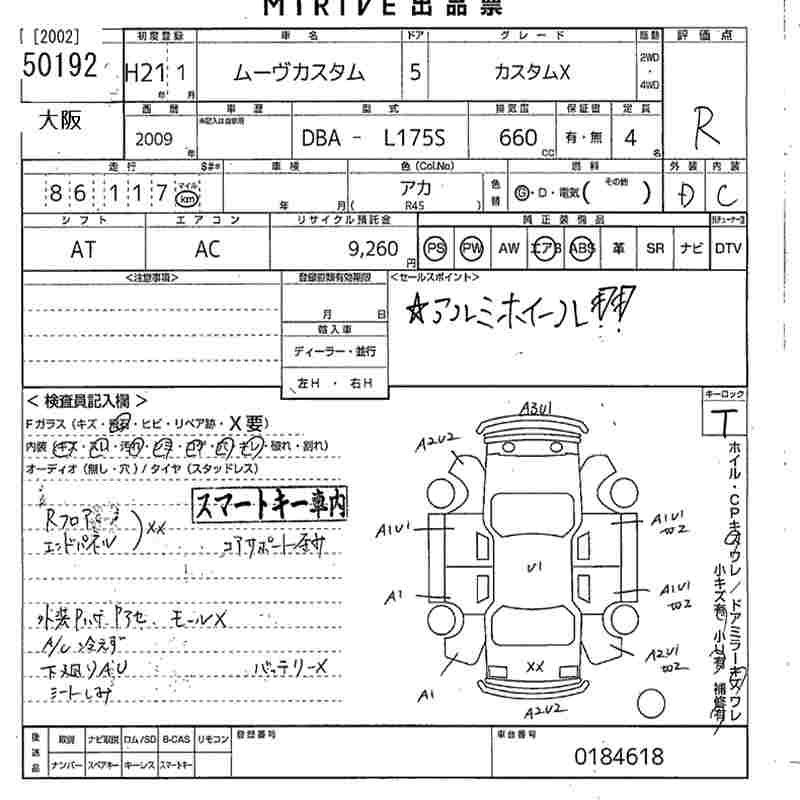 MIRIVE 出品票
[2002]
50192
大阪
初度登録 車名 ドア グレード 駆動 評価点
H21 1 ムーヴカスタム 5 カスタムX 2WD・4WD R
年 月
西暦 車歴 型式 排気量 保証書 定員
未記入は自家用
2009 年 DBA - L175S 660 CC 有・無 4 名
走行 S#* 車検 色(Col.No) 燃料 外装 内装
86,117 マイル km 年 月 アカ R45 ( ) 色替 G・D・電気( その他 ) D C
シフト エアコン リサイクル預託金 純正装備品
AT AC 9,260 円 PS PW AW エアB ABS 革 SR ナビ DTV
<注意事項> 登録書類有効期限 <セールスポイント>
月 日
☆アルミホイール!!
輸入車
ディーラー・並行
左H ・ 右H
<検査員記入欄>
キーロック
T
Fガラス (キズ・飛石・ヒビ・リペア跡・X要)
内装 (キズ・スレ・汚れ・シミ・コゲ・穴・キレ・破れ・割れ)
オーディオ (無し・穴) / タイヤ (スタッドレス)
スマートキー車内
Rフロア
エンドパネル
XX
コアサポート
外装
モールX
A/C 冷えず
下廻りAU
バッテリーX
シートしみ
A3U1
A2U2
A1U1
A1
A1
U1
XX
A2U2
A1U1 W2
A1U1 W2
A2U1 W2
ホイル・CPキズ・ワレ / ドアミラーキズ・ワレ
小キズ有 小U有 補修有
後送品 取説 ナビ取説 ロム/SD B-CAS リモコン
ナンバー スペアキー キーレス スマートキー
登録番号 車台番号
0184618